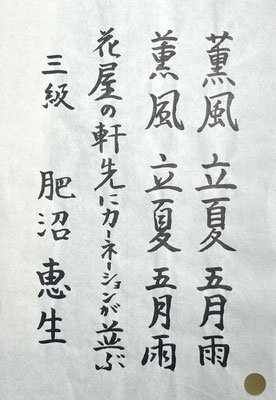 薫風 立夏 五月雨
薫風 立夏 五月雨
花屋の軒先にカーネーションが並ぶ
三級 肥沼 恵生